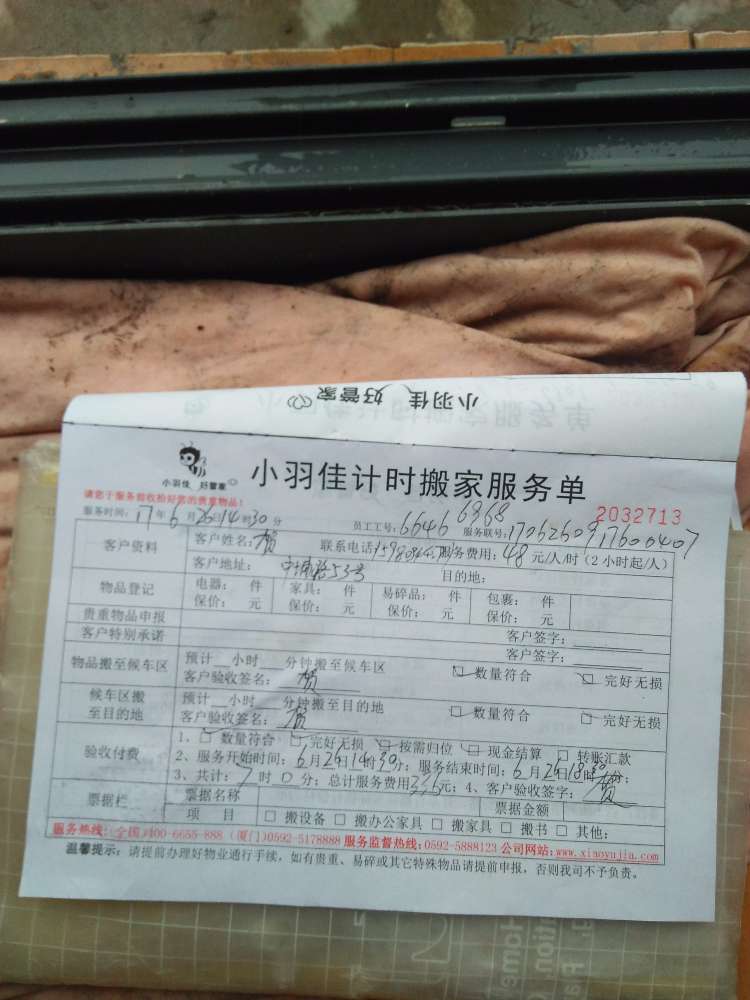 小羽佳 好管家
小羽佳 好管家
小羽佳计时搬家服务单
请您于服务前收拾好您的贵重物品！
2032713
服务时间：17年6月26日14时30分 员工工号：6646 6968 服务联号：1706260917600407
客户资料 客户姓名： 联系电话 服务费用：48元/人/时（2小时起/人）
客户地址： 53号 目的地：
物品登记 电器： 件 家具： 件 易碎品： 件 包裹： 件
保价： 元 保价： 元 保价： 元 保价： 元
贵重物品申报 客户签字：
客户特别承诺 客户签字：
物品搬至候车区 预计 小时 分钟搬至候车区 数量符合 完好无损
客户验收签名：
候车区搬至目的地 预计 小时 分钟搬至目的地 数量符合 完好无损
客户验收签名：
验收付费 1、 数量符合 完好无损 按需归位 现金结算 转账汇款
2、服务开始时间：6月26日14时30分；服务结束时间：6月26日18时30分；
3、共计：7时0分；总计服务费用336元；4、客户验收签字：
票据栏 票据名称 票据金额
项 目 搬设备 搬办公家具 搬家具 搬书 其他：
服务热线：全国400-6655-888（厦门）0592-5178888 服务监督热线：0592-5888123 公司网站：www.xiaoyujia.com
温馨提示：请提前办理好物业通行手续，如有贵重、易碎或其它特殊物品请提前申报，否则我司不予负责。
Home